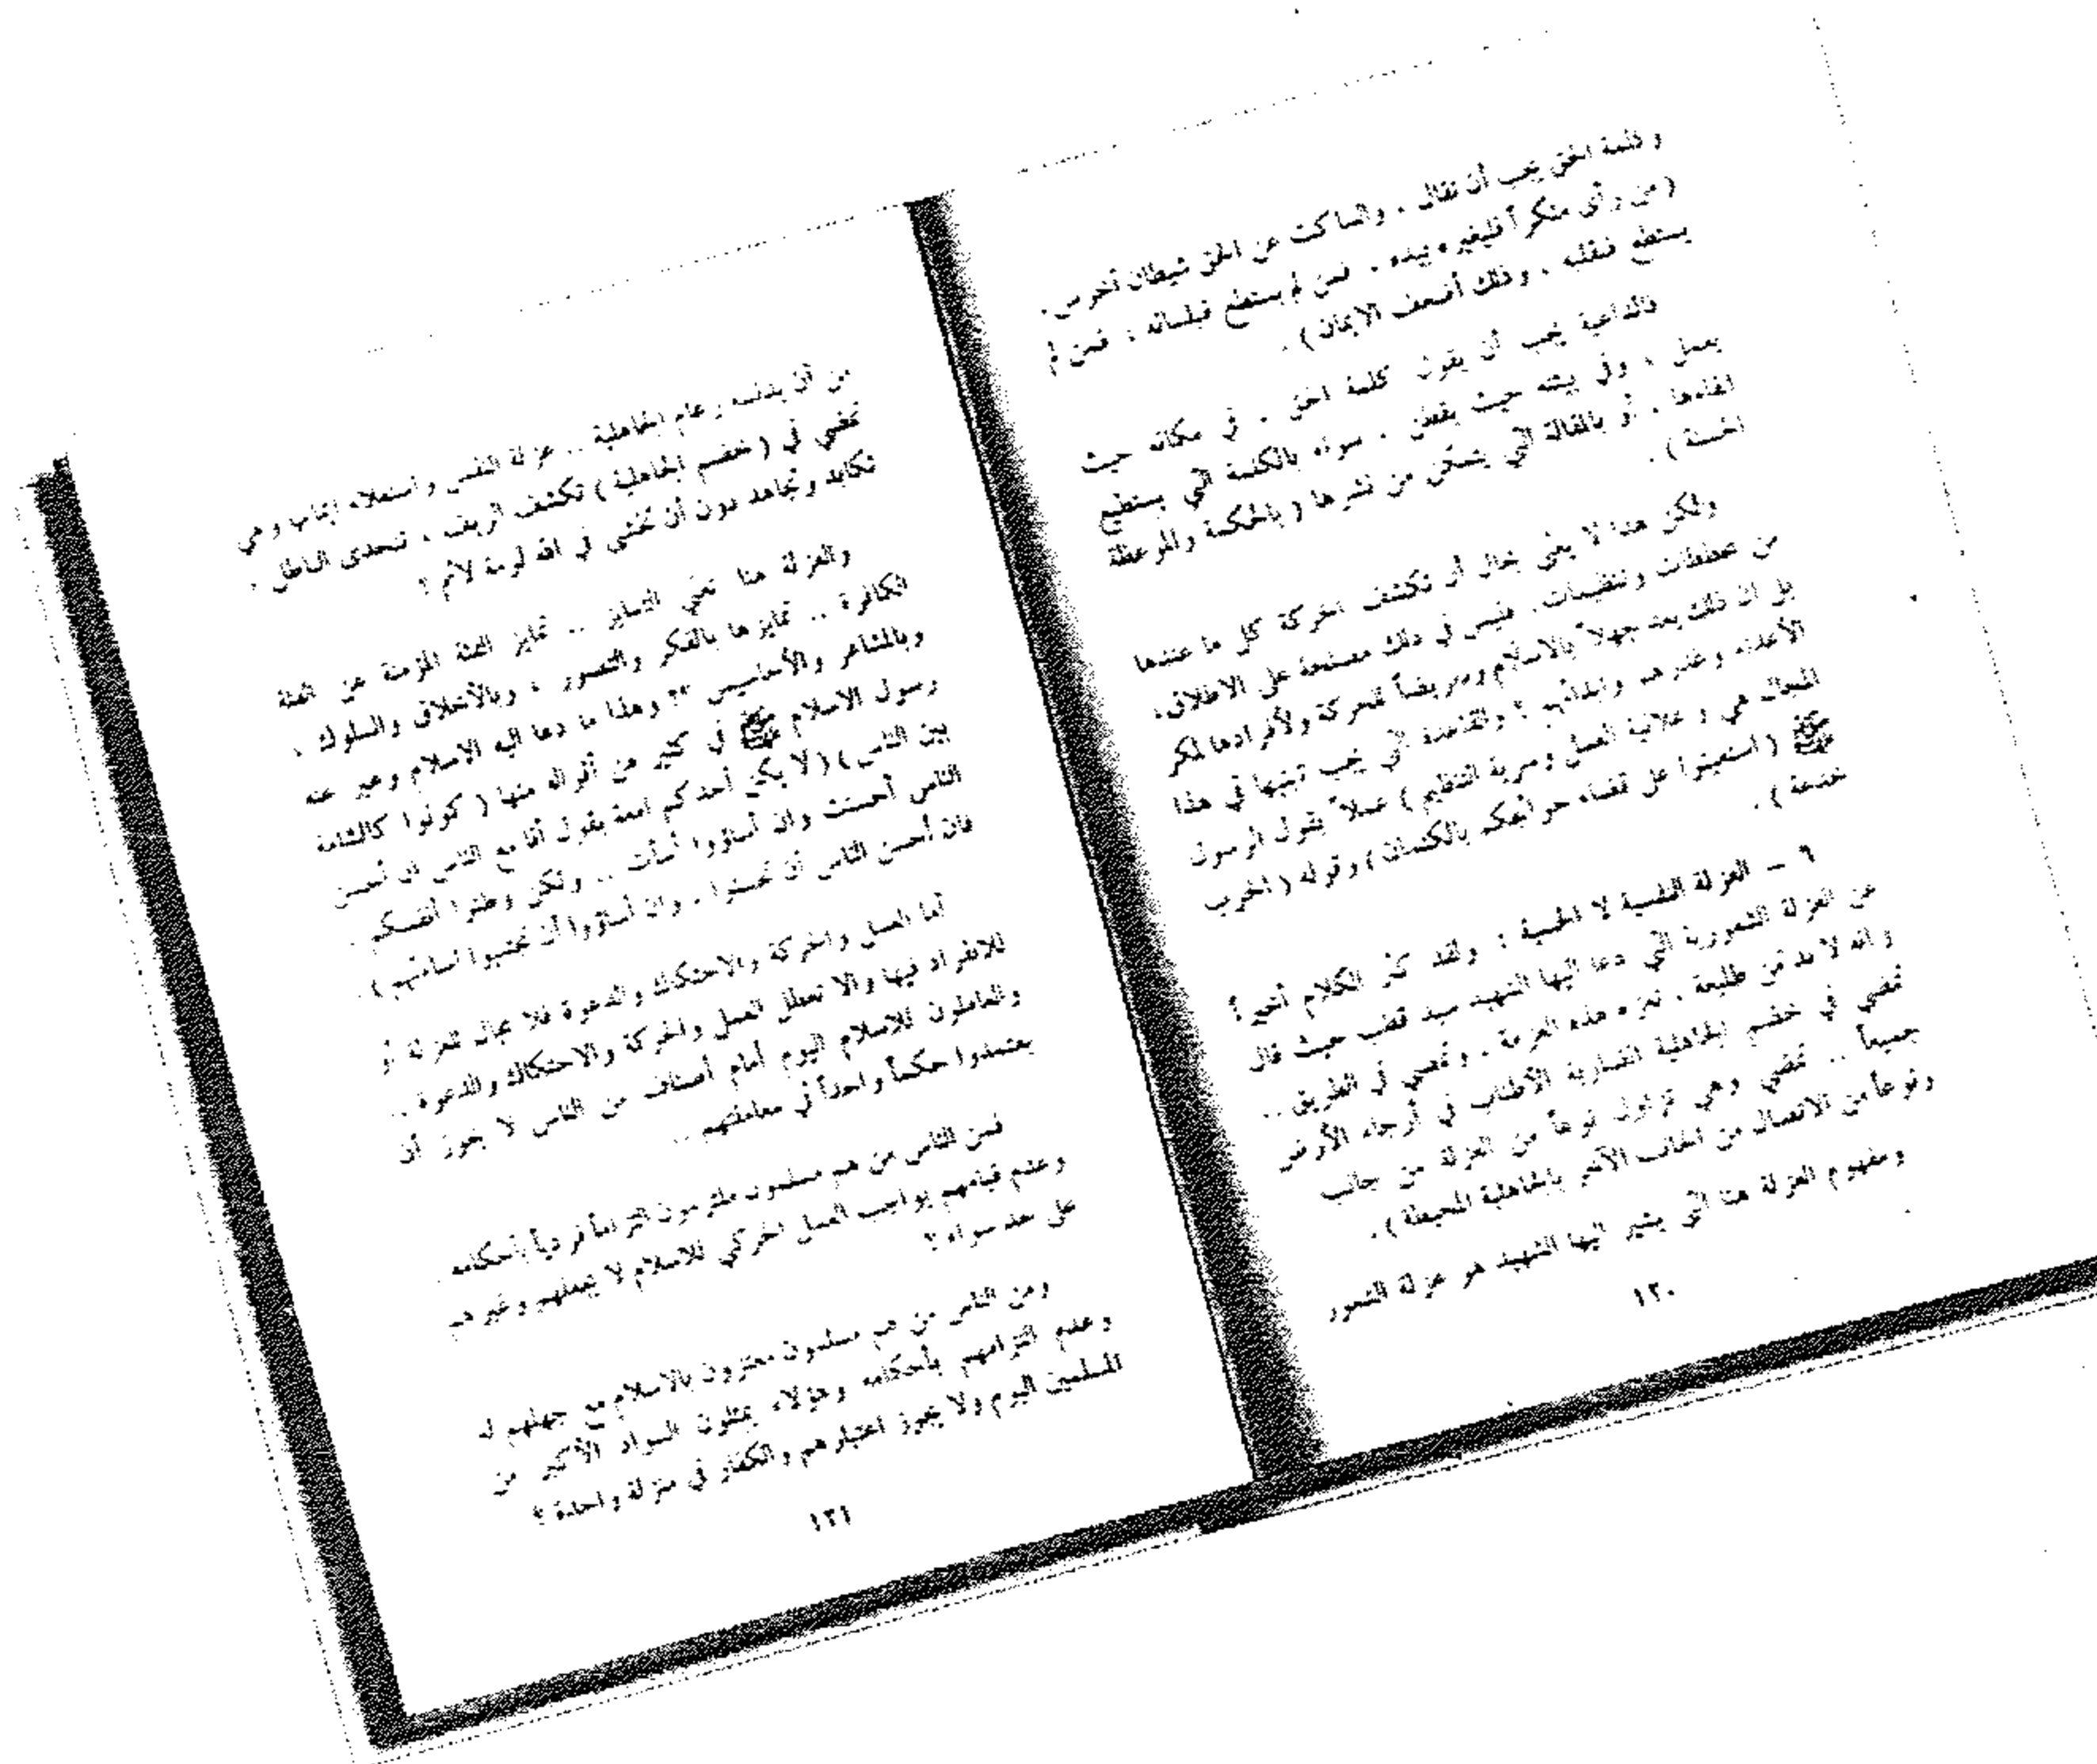 وكلمة الحق يجب أن تقال ، والساكت عن الحق شيطان أخرس .
( من رأى منكراً فليغيره بيده ، فمن لم يستطع فبلسانه ، فمن لم
يستطع فبقلبه ، وذلك أضعف الايمان ) .
فالداعية يجب أن يقول كلمة الحق ، في مكانه حيث
يعمل ، وفي بيئته حيث يقطن ، سواء بالكلمة التي يستطيع
أو بالمقالة التي يتمكن من نشرها ( بالحكمة والموعظة
الحسنة ) .
ولكن هذا لا يعني بحال أن تكشف الحركة كل ما عندها
من مخططات وتنظيمات . فليس في ذلك مصلحة على الاطلاق ،
بل ان ذلك يعد جهلاً بالاسلام وتعريضاً للحركة ولأفرادها لمكر
الأعداء وغدرهم وايذائهم ؛ والقاعدة التي يجب تبنيها في هذا
المجال هي ( علانية العمل وسرية التنظيم ) عملاً بقول الرسول
ﷺ ( استعينوا على قضاء حوائجكم بالكتمان ) وقوله ( الحرب
خدعة ) .
٦ – العزلة النفسية لا الحسية : ولقد كثر الكلام أخيراً
عن العزلة الشعورية التي دعا اليها الشهيد سيد قطب حيث قال
( انه لا بد من طليعة ، تعزم هذه العزمة ، وتمضي في الطريق ..
تمضي في خضم الجاهلية الضاربة الأطناب في أرجاء الأرض
جميعاً .. تمضي وهي تزاول نوعاً من العزلة من جانب
ونوعاً من الاتصال من الجانب الآخر بالجاهلية المحيطة ) .
ومفهوم العزلة هنا التي يشير اليها الشهيد هو عزلة الشعور
١٣٠
من أن يدنسه رغام الجاهلية .. عزلة النفس واستعلاء ايمان وهي
تمضي في ( خضم الجاهلية ) تكشف الزيف ، تتحدى الباطل ،
تكابد وتجاهد دون أن تخشى في الله لومة لائم ؟
والعزلة هنا تعني التمايز .. تمايز الفئة المؤمنة عن الفئة
الكافرة .. تمايزها بالفكر والتصور ، وبالأخلاق والسلوك ،
وبالمشاعر والأحاسيس ؟؟ وهذا ما دعا اليه الاسلام وعبر عنه
رسول الاسلام ﷺ في كثير من أقواله منها ( كونوا كالشامة
بين الناس ) ( لا يكن أحدكم امعة يقول أنا مع الناس ان أحسن
الناس أحسنت وان أساؤوا أسأت .. ولكن وطنوا أنفسكم .
فان أحسن الناس أن تحسنوا ، وان أساؤوا أن تجتنبوا اساءتهم ) .
أما العمل والحركة والاحتكاك والدعوة فلا مجال للعزلة أو
للانفراد فيها والا تعطل العمل والحركة والاحتكاك والدعوة ..
والعاملون للاسلام اليوم أمام أصناف من الناس لا يجوز أن
يعتمدوا حكماً واحداً في معاملتهم ..
فمن الناس من هم مسلمون ملتزمون التزاماً فردياً بأحكامه
وعدم قيامهم بواجب العمل الحركي للاسلام لا يجعلهم وغيرهم
على حد سواء ؟
ومن الناس من هم مسلمون معتزون بالاسلام مع جهلهم له
وعدم التزامهم بأحكامه وهؤلاء يمثلون السواد الأكبر من
المسلمين اليوم ولا يجوز اعتبارهم والكفار في منزلة واحدة ؟
١٣١